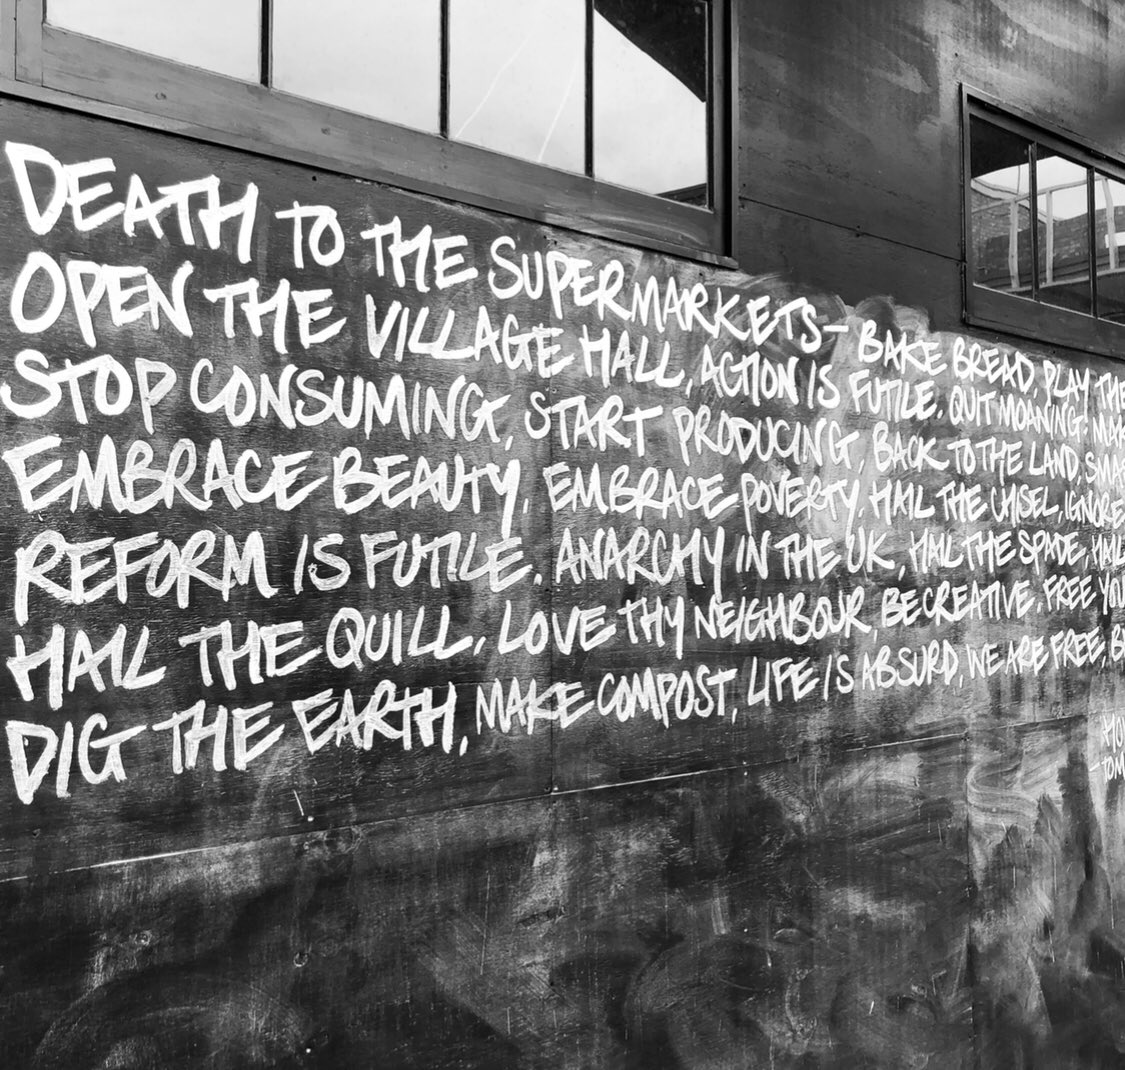 DEATH TO THE SUPERMARKETS- BAKE BREAD, PLAY THE
OPEN THE VILLAGE HALL, ACTION IS FUTILE. QUIT MOANING.
STOP CONSUMING, START PRODUCING, BACK TO THE LAND,
EMBRACE BEAUTY, EMBRACE POVERTY, HAIL THE CHISEL, IGNORE
REFORM IS FUTILE. ANARCHY IN THE UK, HAIL THE SPADE, HAIL
HAIL THE QUILL, LOVE THY NEIGHBOUR, BE CREATIVE, FREE
DIG THE EARTH, MAKE COMPOST, LIFE IS ABSURD, WE ARE FREE,